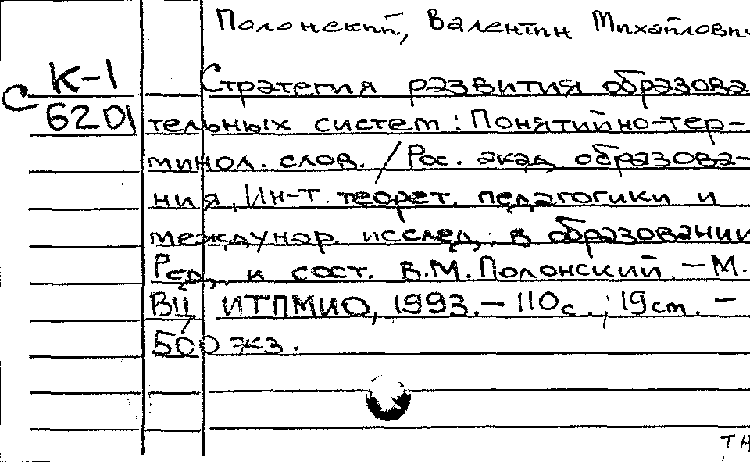 Полонский, Валентин Михайлови
К-1
С 6201
Стратегия развития образова
тельных систем: Понятийно-тер-
минол. слов. / Рос. акад. образова-
ния, Ин-т теорет. педагогики и
междунар. исслед. в образовании
Ред. и сост. В.М. Полонский. – М.
ВЦ ИТПМИО, 1993. – 110с.; 19см. –
500 экз.